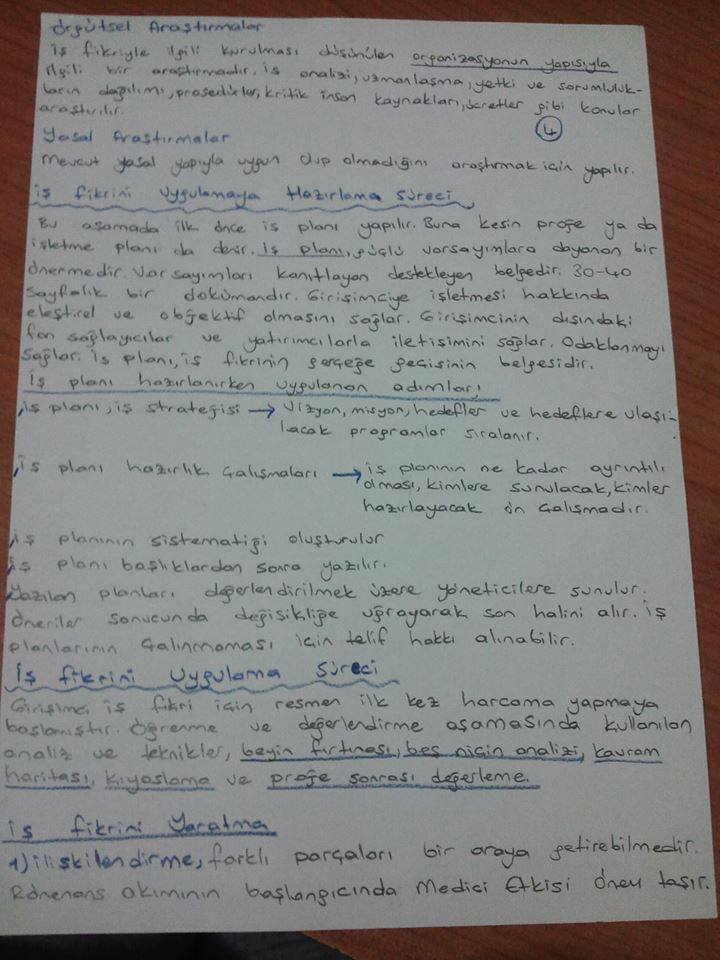 Örgütsel Araştırmalar
İş fikriyle ilgili kurulması düşünülen organizasyonun yapısıyla
ilgili bir araştırmadır. İş analizi, uzmanlaşma, yetki ve sorumluluk-
ların dağılımı, prosedürler, kritik insan kaynakları, ücretler gibi konular
araştırılır.
4
Yasal Araştırmalar
Mevcut yasal yapıyla uygun olup olmadığını araştırmak için yapılır.
İş fikrini Uygulamaya Hazırlama Süreci
Bu aşamada ilk önce iş planı yapılır. Buna kesin proje ya da
işletme planı da denir. İş planı, güçlü varsayımlara dayanan bir
önermedir. Varsayımları kanıtlayan destekleyen belgedir. 30-40
sayfalık bir dokümandır. Girişimciye işletmesi hakkında
eleştirel ve objektif olmasını sağlar. Girişimcinin dışındaki
fon sağlayıcılar ve yatırımcılarla iletişimini sağlar. Odaklanmayı
sağlar. İş planı, iş fikrinin gerçeğe geçişinin belgesidir.
İş planı hazırlanırken uygulanan adımlar;
İş planı, iş stratejisi → Vizyon, misyon, hedefler ve hedeflere ulaşı-
lacak programlar sıralanır.
İş planı hazırlık çalışmaları → iş planının ne kadar ayrıntılı
olması, kimlere sunulacak, kimler
hazırlayacak ön çalışmadır.
İş planının sistematiği oluşturulur
İş planı başlıklardan sonra yazılır.
Yazılan planları değerlendirilmek üzere yöneticilere sunulur.
Öneriler sonucunda değişikliğe uğrayarak son halini alır. İş
planlarının çalınmaması için telif hakkı alınabilir.
İş fikrini Uygulama Süreci
Girişimci iş fikri için resmen ilk kez harcama yapmaya
başlamıştır. Öğrenme ve değerlendirme aşamasında kullanılan
analiz ve teknikler, beyin fırtınası, beş niçin analizi, kavram
haritası, kıyaslama ve proje sonrası değerleme.
İş fikrini Yaratma
1) ilişkilendirme, farklı parçaları bir araya getirebilmedir.
Rönenans akımının başlangıcında Medici Etkisi önem taşır.